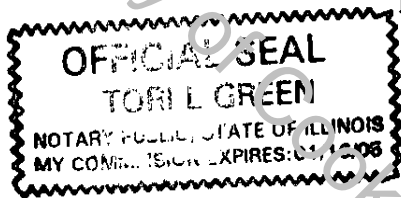 OFFICIAL SEAL
TORI L GREEN
NOTARY PUBLIC, STATE OF ILLINOIS
MY COMMISSION EXPIRES:
of Coo